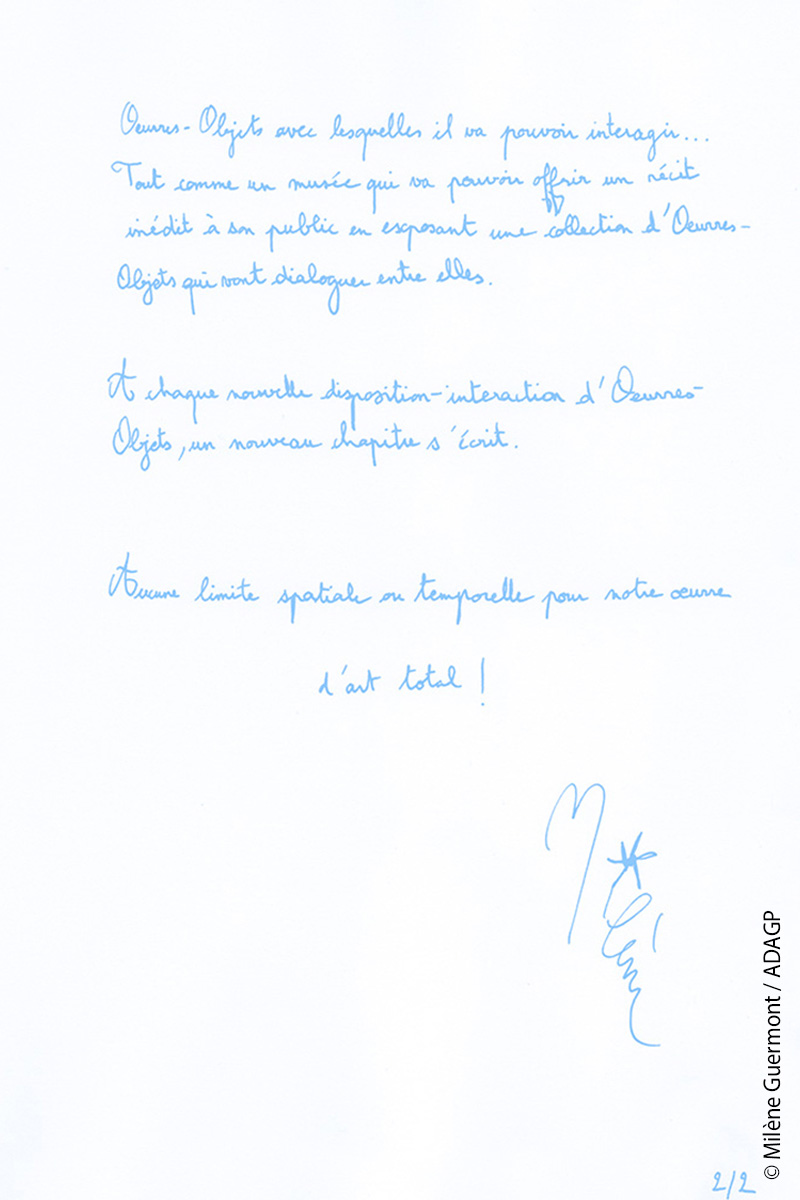 Oeuvres-Objets avec lesquelles il va pouvoir interagir...
Tout comme un musée qui va pouvoir offrir un récit
inédit à son public en exposant une collection d'Oeuvres-
Objets qui vont dialoguer entre elles.
A chaque nouvelle disposition-interaction d'Oeuvres-
Objets, un nouveau chapitre s'écrit.
Aucune limite spatiale ou temporelle pour notre œuvre
d'art total !
Milène
2/2
© Milène Guermont / ADAGP